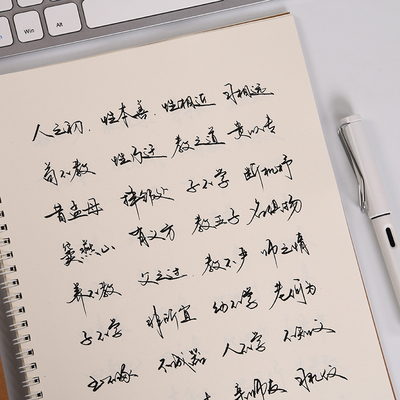 Win Alt
人之初,性本善,性相近 习相远
苟不教 性乃迁 教之道 贵以专
昔孟母 择邻处 子不学 断机杼
窦燕山 有义方 教五子 名俱扬
养不教 父之过 教不严 师之惰
子不学 非所宜 幼不学 老何为
玉不琢 不成器 人不学 不知义
亲师友 习礼仪